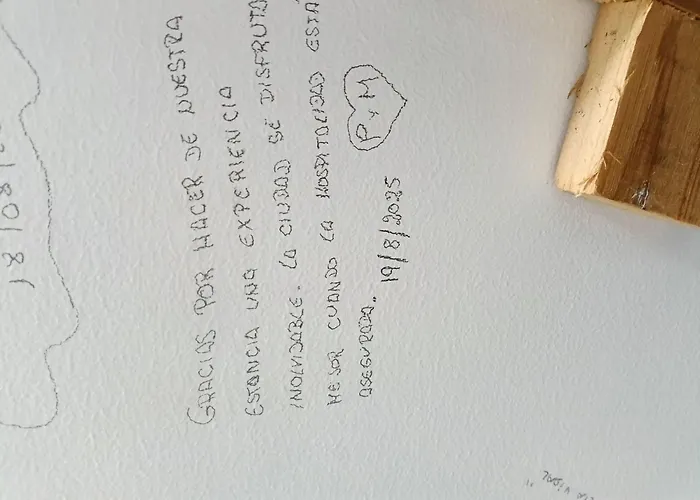 18/08/
GRACIAS POR HACER DE NUESTRA
ESTANCIA UNA EXPERIENCIA
INOLVIDABLE. LA CIUDAD SE DISFRUTA
MEJOR CUANDO LA HOSPITALIDAD ESTÁ
ASEGURADA..
19/8/2025
P y M